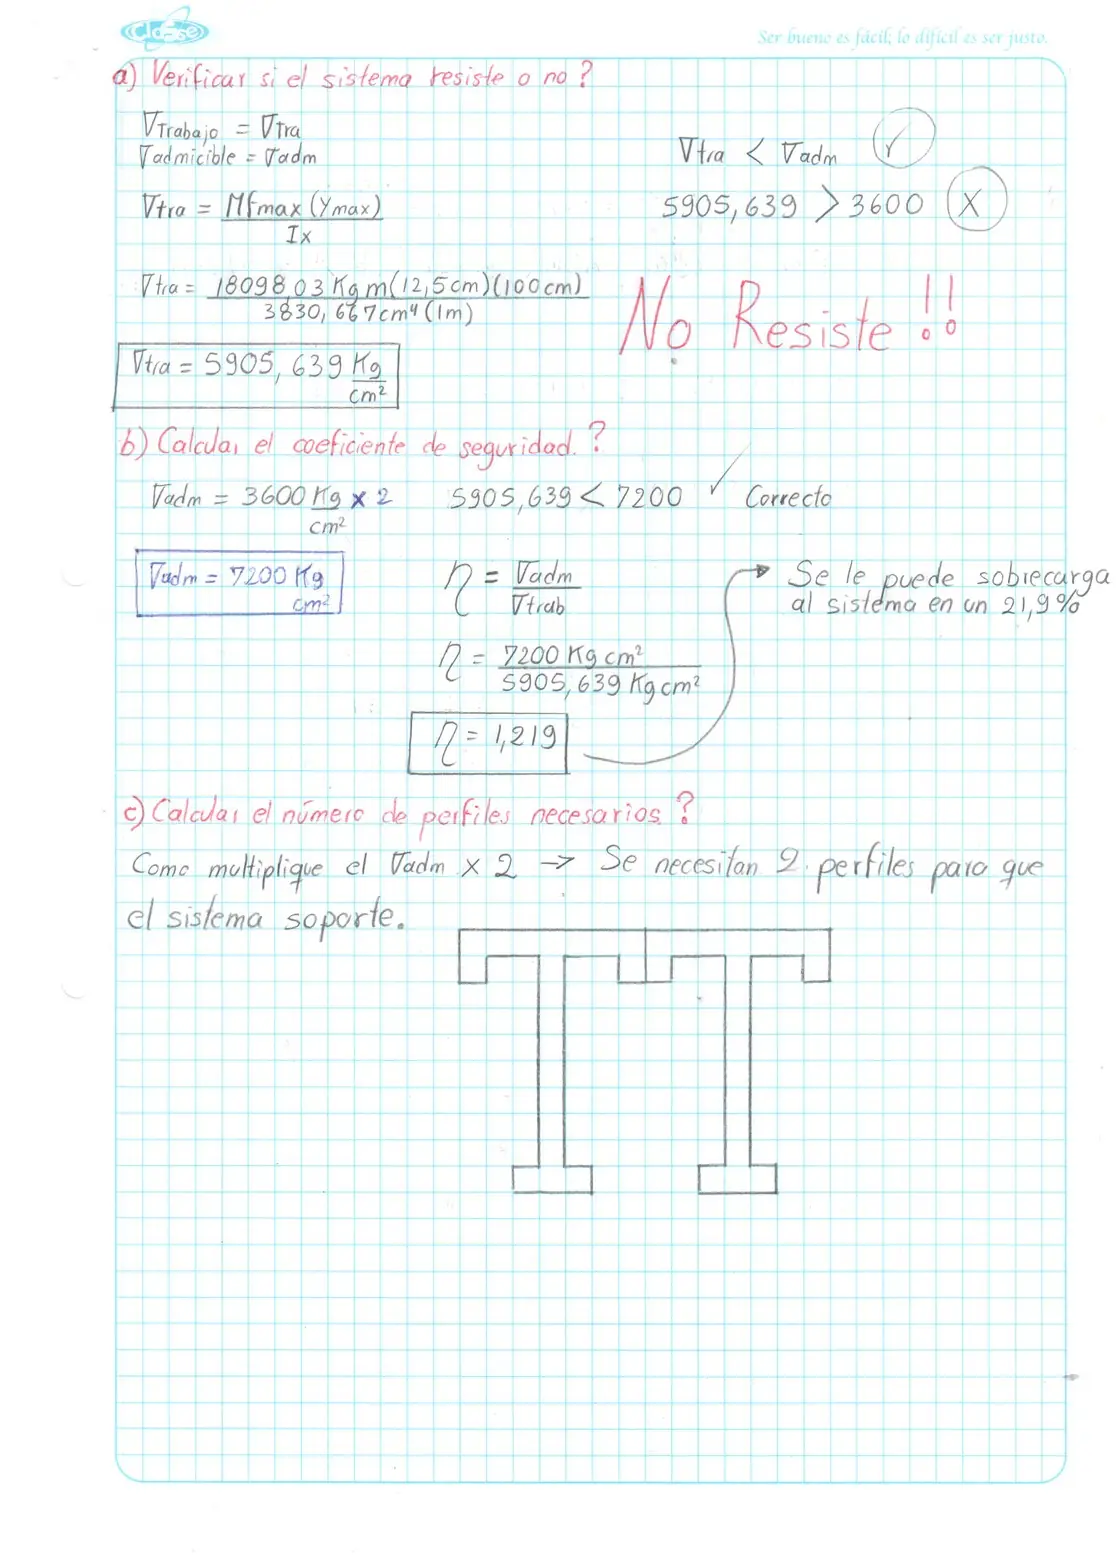 Classe
Ser bueno es fácil; lo difícil es ser justo.
a) Verificar si el sistema resiste o no?
∇Trabajo = ∇tra
∇admicible = ∇adm
∇tra < ∇adm ✓
∇tra = Mfmax (Ymax)
Ix
5905,639 > 3600 X
∇tra = 18098,03 Kg m(12,5cm)(100cm)
3830,667cm⁴(1m)
No Resiste!!
∇tra = 5905,639 Kg
cm²
b) Calcular el coeficiente de seguridad.?
∇adm = 3600 Kg x 2
cm²
5905,639 < 7200 ✓ Correcto
∇adm = 7200 Kg
cm²
η = ∇adm
∇trab
Se le puede sobrecarga
al sistema en un 21,9%
η = 7200 Kg cm²
5905,639 Kg cm²
η = 1,219
c) Calcular el número de perfiles necesarios.?
Como multiplique el ∇adm x 2 → Se necesitan 2 perfiles para que
el sistema soporte.